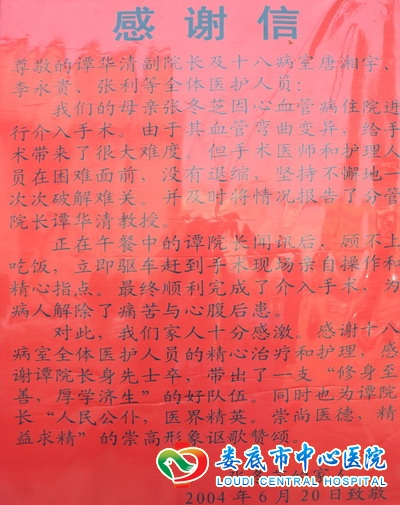 感谢信
尊敬的谭华清副院长及十八病室唐湘宇、
李永贵、张利等全体医护人员：
我们的母亲张冬芝因心血管病住院进
行介入手术。由于其血管弯曲变异，给手
术带来了很大难度，但手术医师和护理人
员在困难面前，没有退缩，坚持不懈地一
次次破解难关。并及时将情况报告了分管
院长谭华清教授。
正在午餐中的谭院长闻讯后，顾不上
吃饭，立即驱车赶到手术现场亲自操作和
精心指点。最终顺利完成了介入手术，为
病人解除了痛苦与心腹后患。
对此，我们家人十分感激。感谢十八
病室全体医护人员的精心治疗和护理，感
谢谭院长身先士卒，带出了一支“修身至
善，厚学济生”的好队伍。同时也为谭院
长“人民公仆，医界精英。崇尚医德，精
益求精”的崇高形象讴歌赞颂。
娄底市中心医院
LOUDI CENTRAL HOSPITAL
2004年6月20日致敬